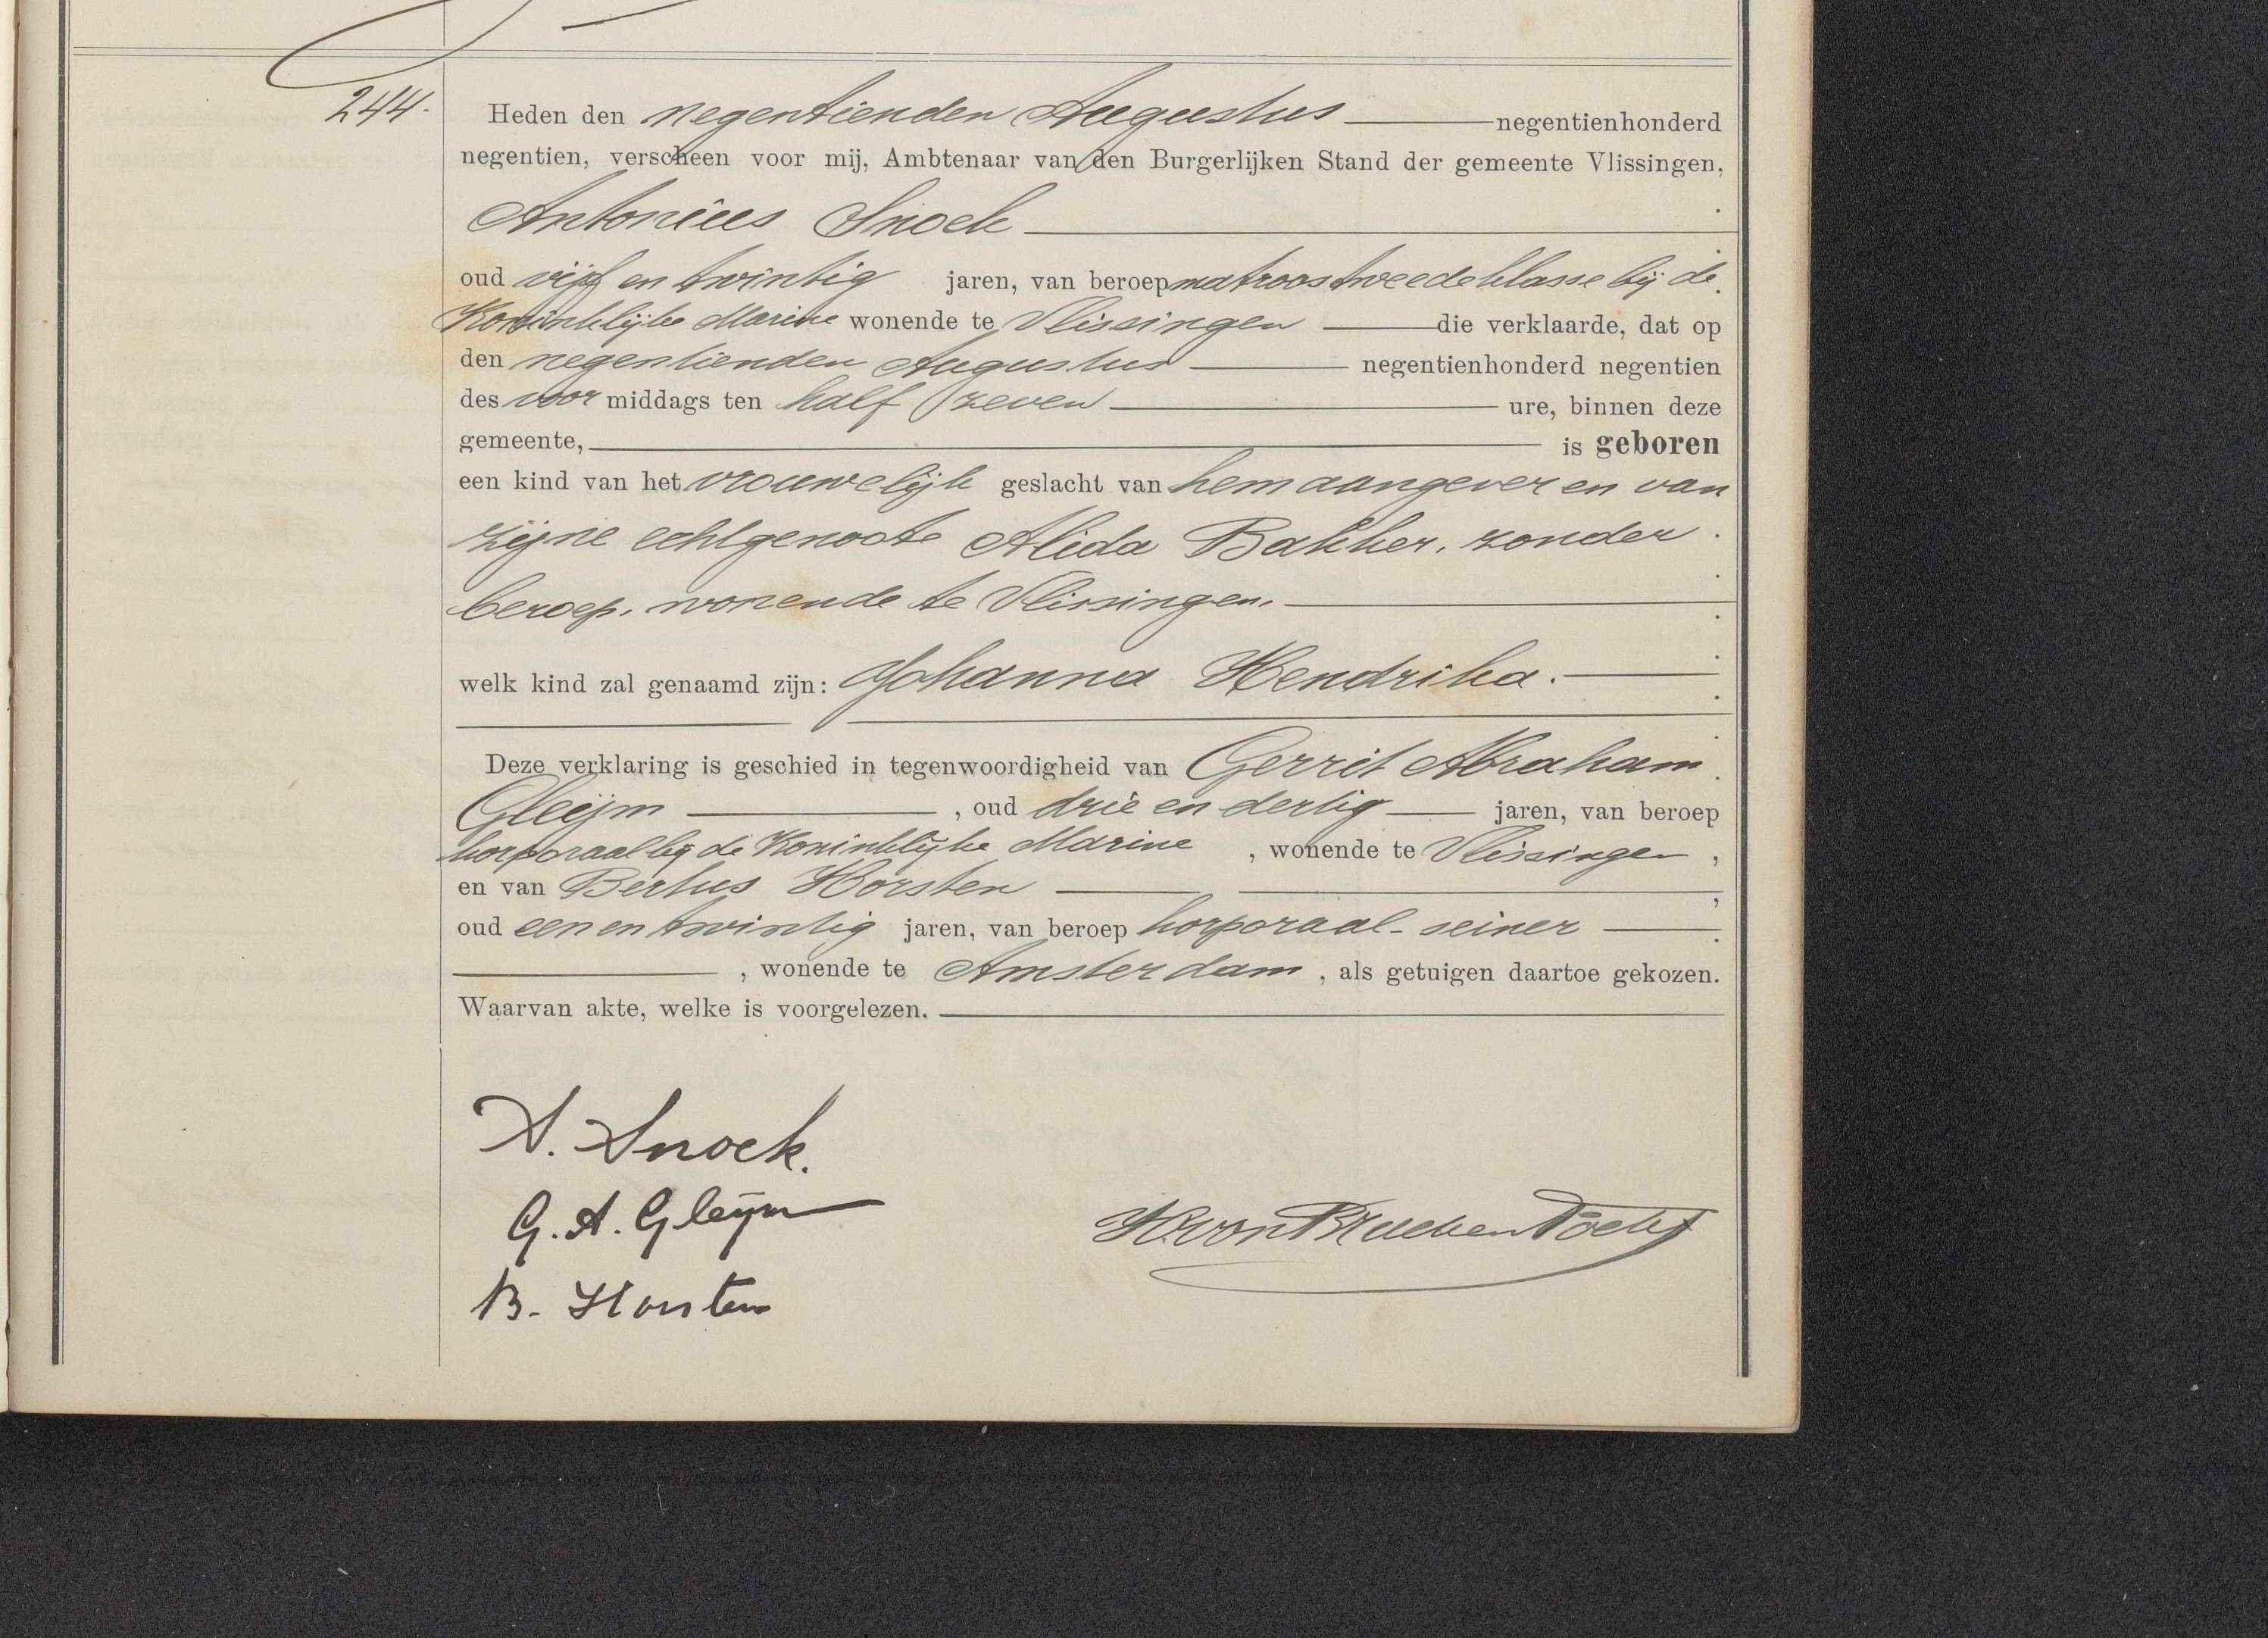 244.
Heden den negentienden Augustus negentienhonderd
negentien, verscheen voor mij, Ambtenaar van den Burgerlijken Stand der gemeente Vlissingen,
Antonius Snoek
oud vijf en twintig jaren, van beroep matroos tweede klasse bij de
Koninklijke Marine wonende te Vlissingen die verklaarde, dat op
den negentienden Augustus negentienhonderd negentien
des voor middags ten half zeven ure, binnen deze
gemeente, is geboren
een kind van het vrouwelijk geslacht van hem aangever en van
zijne echtgenoote Alida Bakker, zonder
beroep, wonende te Vlissingen.
welk kind zal genaamd zijn: Johanna Hendrika.
Deze verklaring is geschied in tegenwoordigheid van Gerrit Abraham
Gleijm, oud drie en dertig jaren, van beroep
korporaal bij de Koninklijke Marine, wonende te Vlissingen,
en van Bertus Horsten,
oud een en twintig jaren, van beroep korporaal-seiner
, wonende te Amsterdam, als getuigen daartoe gekozen.
Waarvan akte, welke is voorgelezen.
A. Snoek.
G. A. Gleijm
B. Horsten